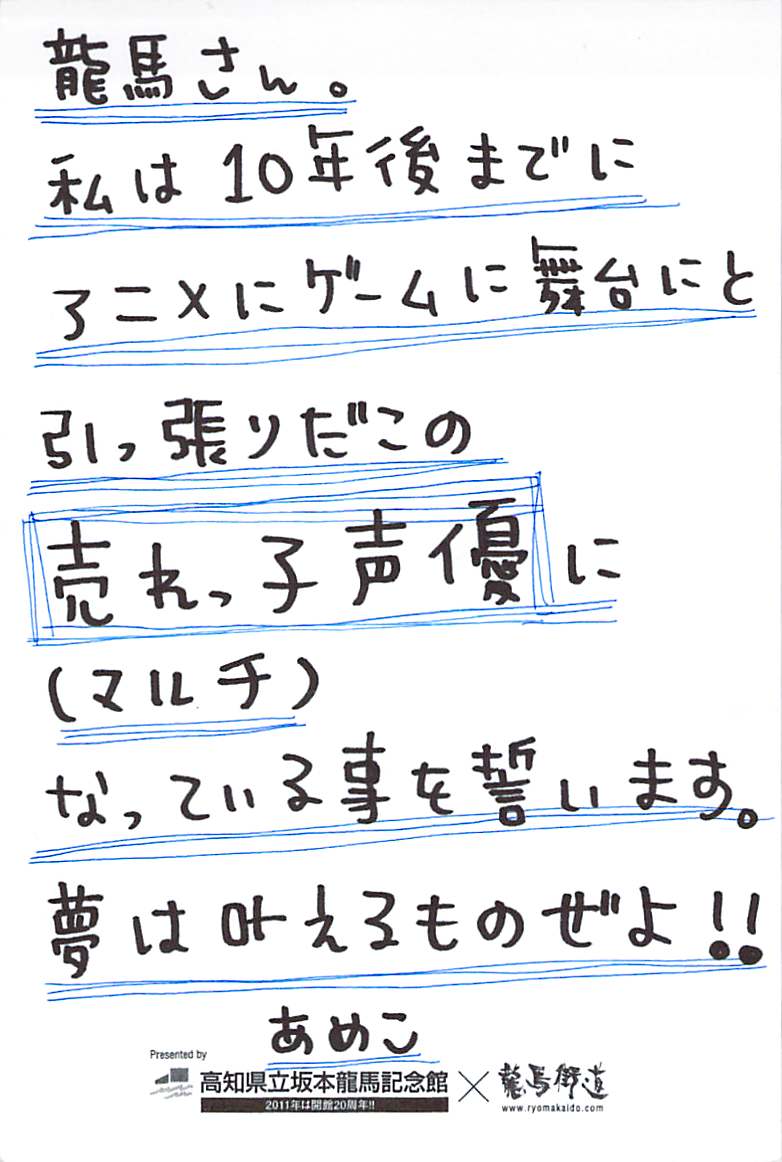 龍馬さん。
私は10年後までに
アニメにゲームに舞台にと
引っ張りだこの
売れっ子声優に
(マルチ)
なっている事を誓います。
夢は叶えるものぜよ!!
あめこ
Presented by
高知県立坂本龍馬記念館×龍馬街道
2011年は開館20周年!!
www.ryomakaido.com